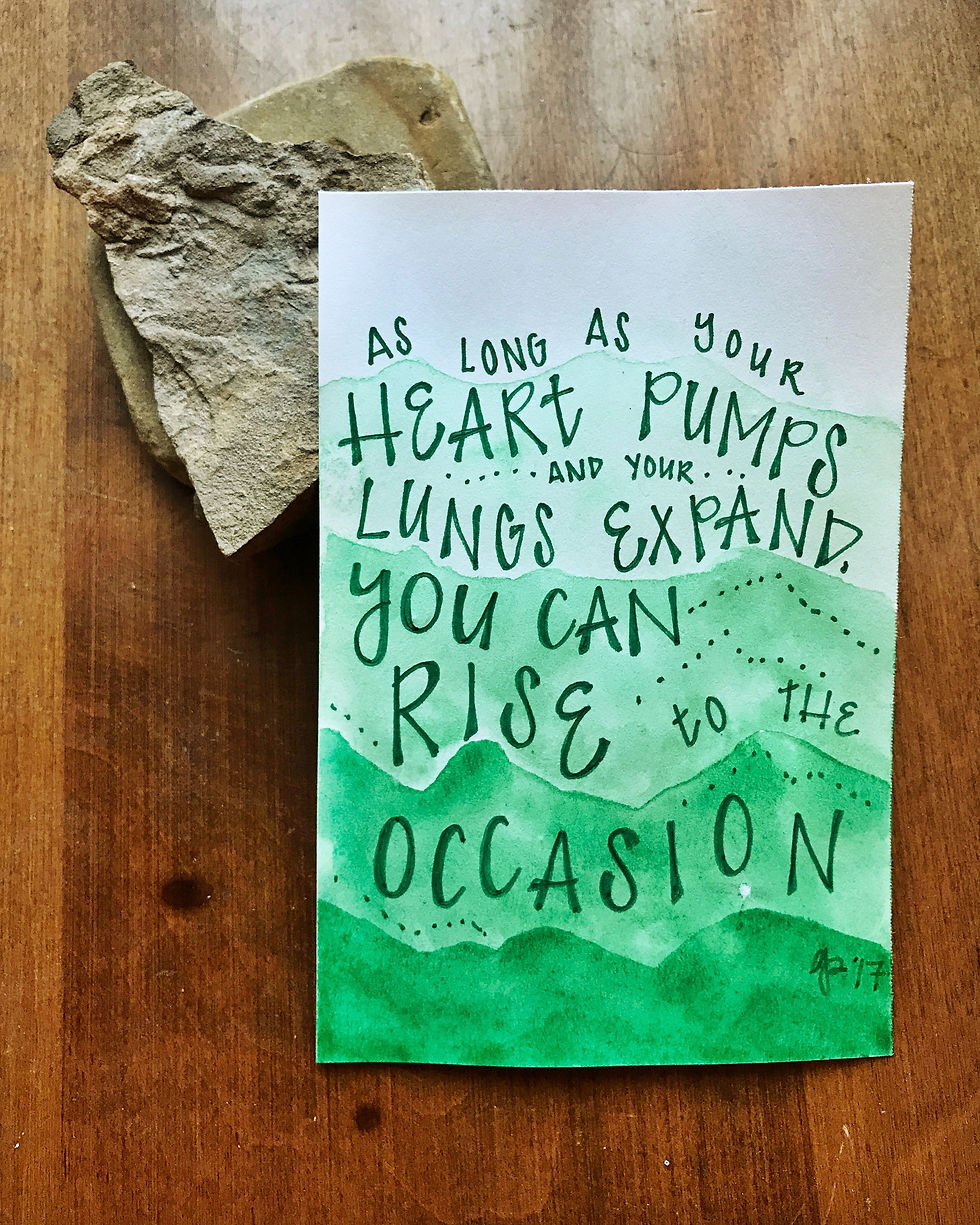 AS LONG AS YOUR
HEART PUMPS
AND YOUR
LUNGS EXPAND,
YOU CAN
RISE to tHE
OCCASION
'17